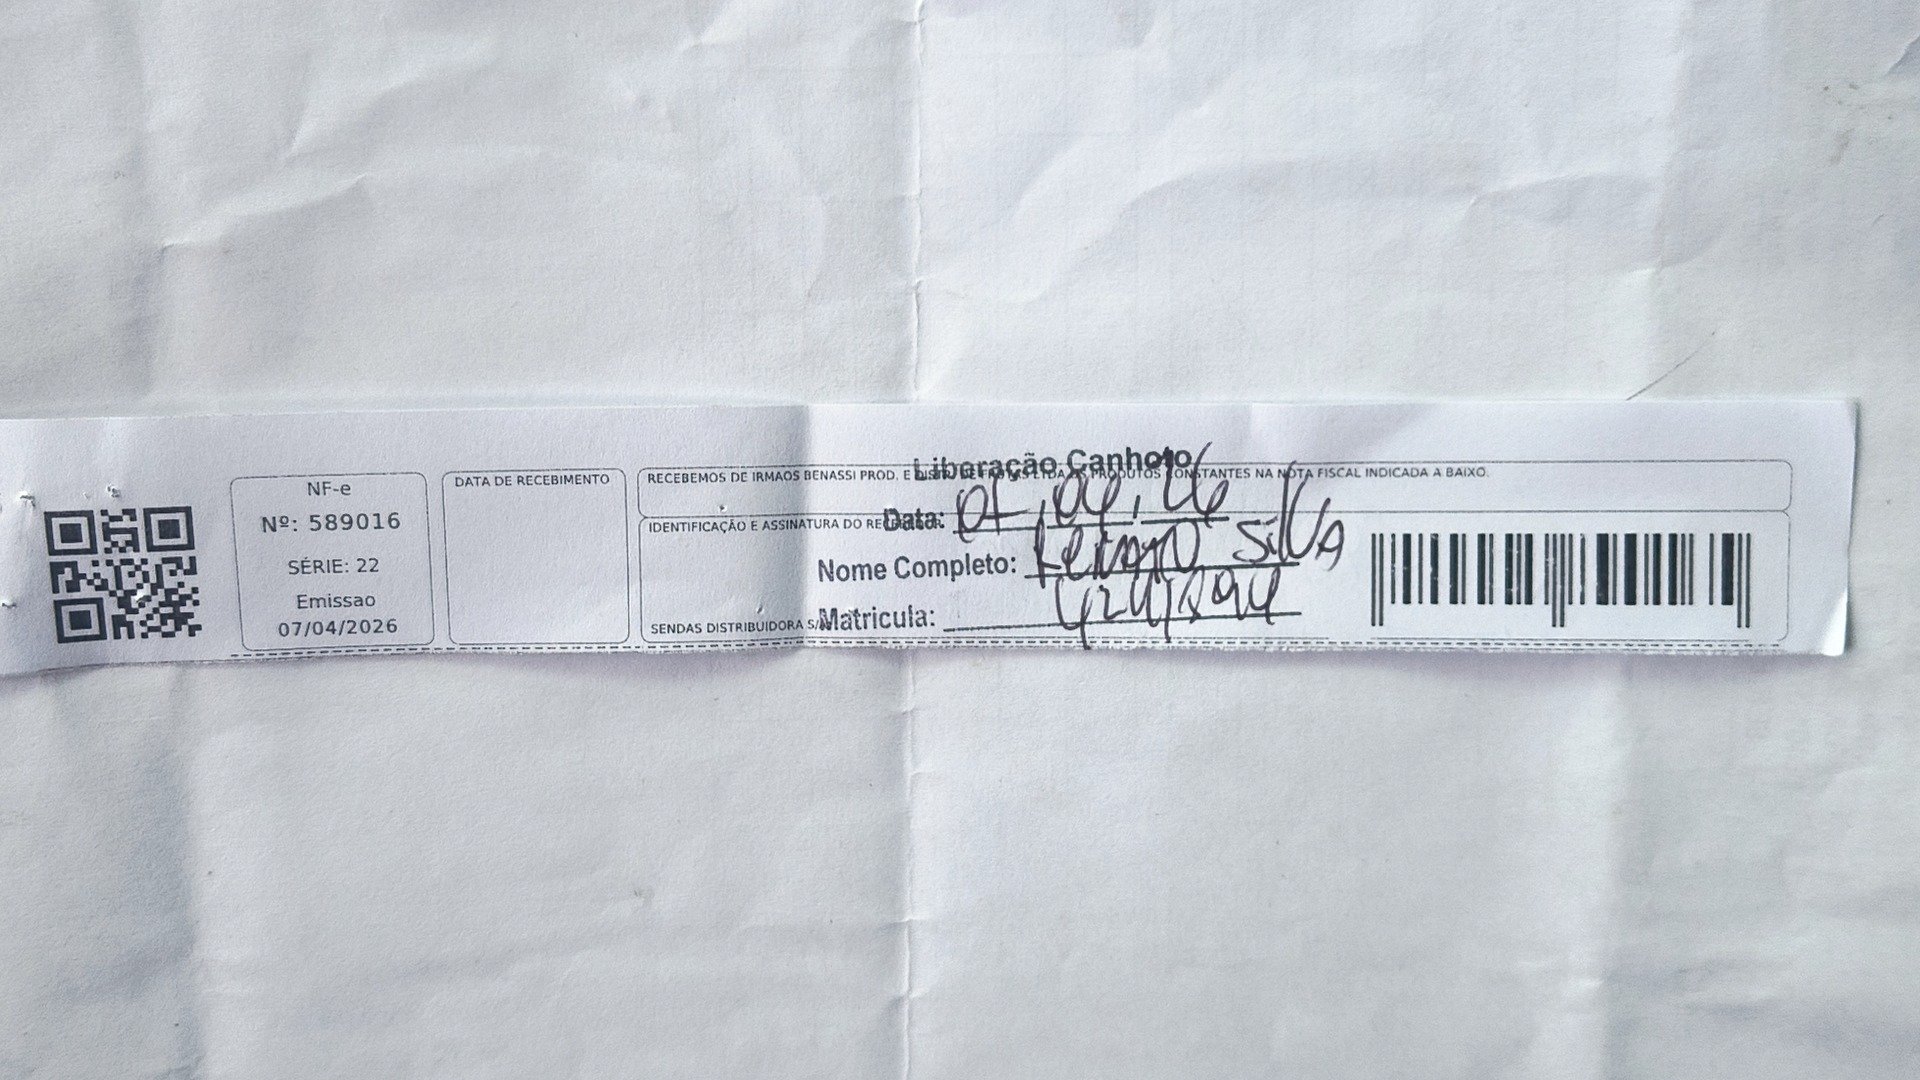 NF-e
Nº: 589016
SÉRIE: 22
Emissao
07/04/2026
DATA DE RECEBIMENTO
RECEBEMOS DE IRMAOS BENASSI PROD. E DISTR. DE FRUTAS LTDA OS PRODUTOS CONSTANTES NA NOTA FISCAL INDICADA A BAIXO.
IDENTIFICAÇÃO E ASSINATURA DO
SENDAS DISTRIBUIDORA S/A
Liberação Canhoto
Data: 07, 04, 26
Nome Completo: Silva
Matricula: